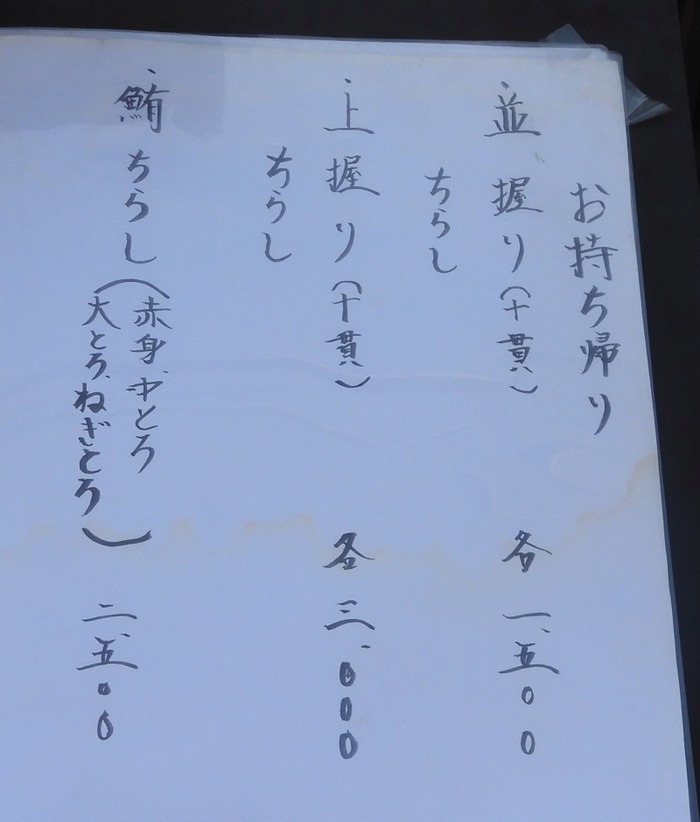 お持ち帰り
・並 握り(十貫) 各 一、五〇〇
ちらし
・上 握り(十貫) 各 三、〇〇〇
ちらし
・鮪 ちらし(赤身、中とろ
大とろ、ねぎとろ) 二、五〇〇